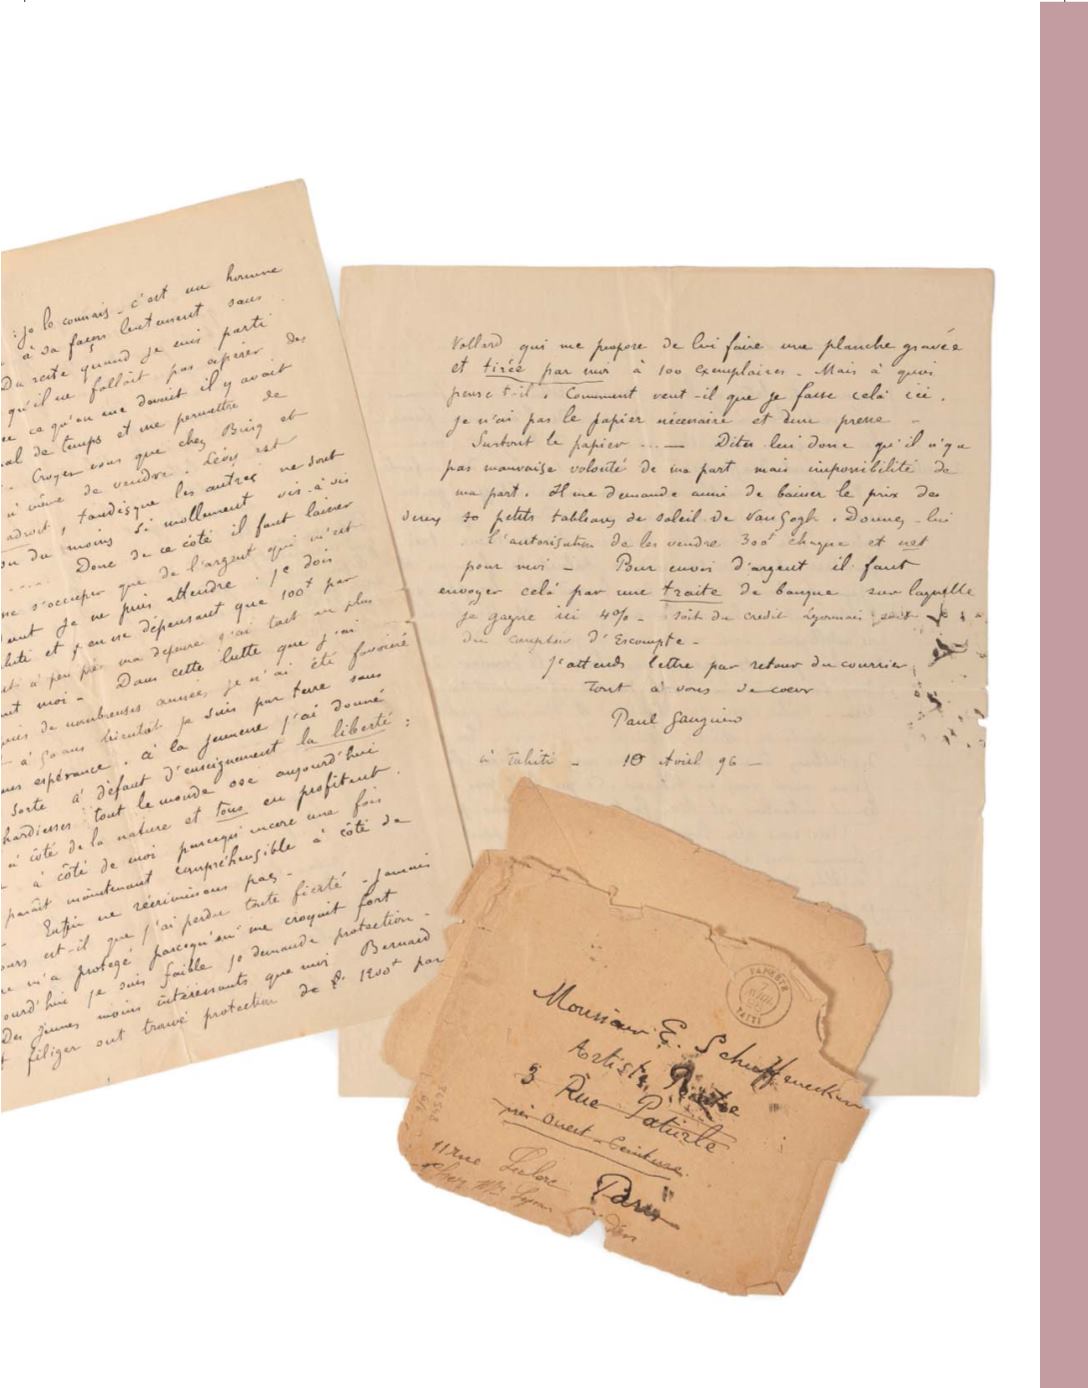 : Je le connais - c'est un homme
à sa façon lentement sans
Du reste quand je suis parti
qu'il ne fallait pas espérer des
ce qu'on me devait il y avait
de temps et me permettre de
Croyez vous que chez Bing et
même de vendre. Lévy est
adroit, tandisque les autres ne sont
ou du moins si mollement vis-à-vis
.... Donc de ce côté il faut laisser
ne s'occuper que de l'argent qui m'est
je ne puis attendre. Je dois
et j'en ne dépensant que 100f par
à peu près ma depense j'ai tout au plus
moi - Dans cette lutte que j'ai
de nombreuses années, je n'ai été favorisé
à 50 ans bientôt je suis par terre sans
espérance. à la jeunesse j'ai donné
sorte à défaut d'enseignement la liberté :
hardiesses tout le monde ose aujourd'hui
à côté de la nature et tous en profitent.
à côté de moi parcequ'encore une fois
paraît maintenant compréhensible à côté de
Enfin ne récriminons pas -
est-il que j'ai perdu toute fierté - jamais
m'a protégé parcequ'on me croyait fort
je suis faible je demande protection -
Des jeunes moins intéressants que moi Bernard
filiger ont trouvé protection de 1200f par
Vollard qui me propose de lui faire une planche gravée
et tirée par moi à 100 exemplaires - Mais à quoi
pense t-il. Comment veut-il que je fasse celà ici.
je n'ai pas le papier nécessaire et d'une presse -
Surtout le papier ... — Dites lui donc qu'il n'y a
pas mauvaise volonté de ma part mais impossibilité de
ma part. Il me demande aussi de baisser le prix des
deux petits tableaux de soleil de Van Gogh. Donnez-lui
l'autorisation de les vendre 300f chaque et net
pour moi - Pour envoi d'argent il faut
envoyer celà par une traite de banque sur laquelle
je gagne ici 4% - soit du credit Lyonnais soit
du comptoir d'Escompte -
J'attends lettre par retour du courrier
Tout à vous de coeur
Paul Gauguin
à Tahiti - 10 Avril 96 -
PAPEETE
TAITI
Monsieur E. Schuffenecker
Artiste Peintre
3 Rue Paturle
près Ouest-Ceinture
11 rue Leclerc
Paris
chez Mr